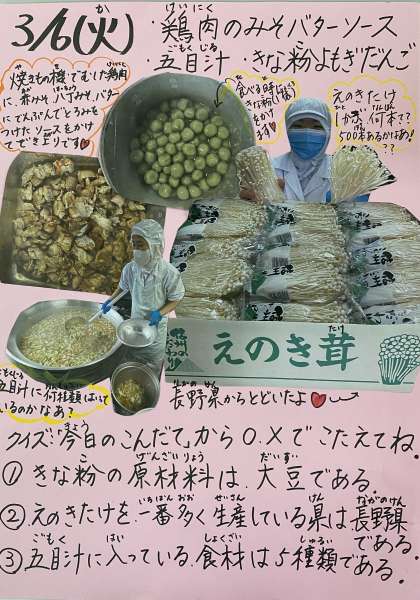 3/6(火)
・鶏肉のみそバターソース
・五目汁 ・きな粉よもぎだんご
焼きもの機でむした鶏肉
に、赤みそ、八丁みそ、バター
にでんぷんでとろみを
つけたソースをかけ
てでき上りです♥
食べる時に
きな粉を
かけ
ます
えのきたけ
は、何本?
500本あるかなぁ?
??
えのき茸
信州の
長野県からとどいたよ♥
五目汁に何種類はいって
いるのかなぁ?
クイズ:「今日のこんだて」から〇、×でこたえてね。
① きな粉の原材料は、大豆である。
② えのきたけを、一番多く生産している県は長野県
である。
③ 五目汁に入っている、食材は5種類である。